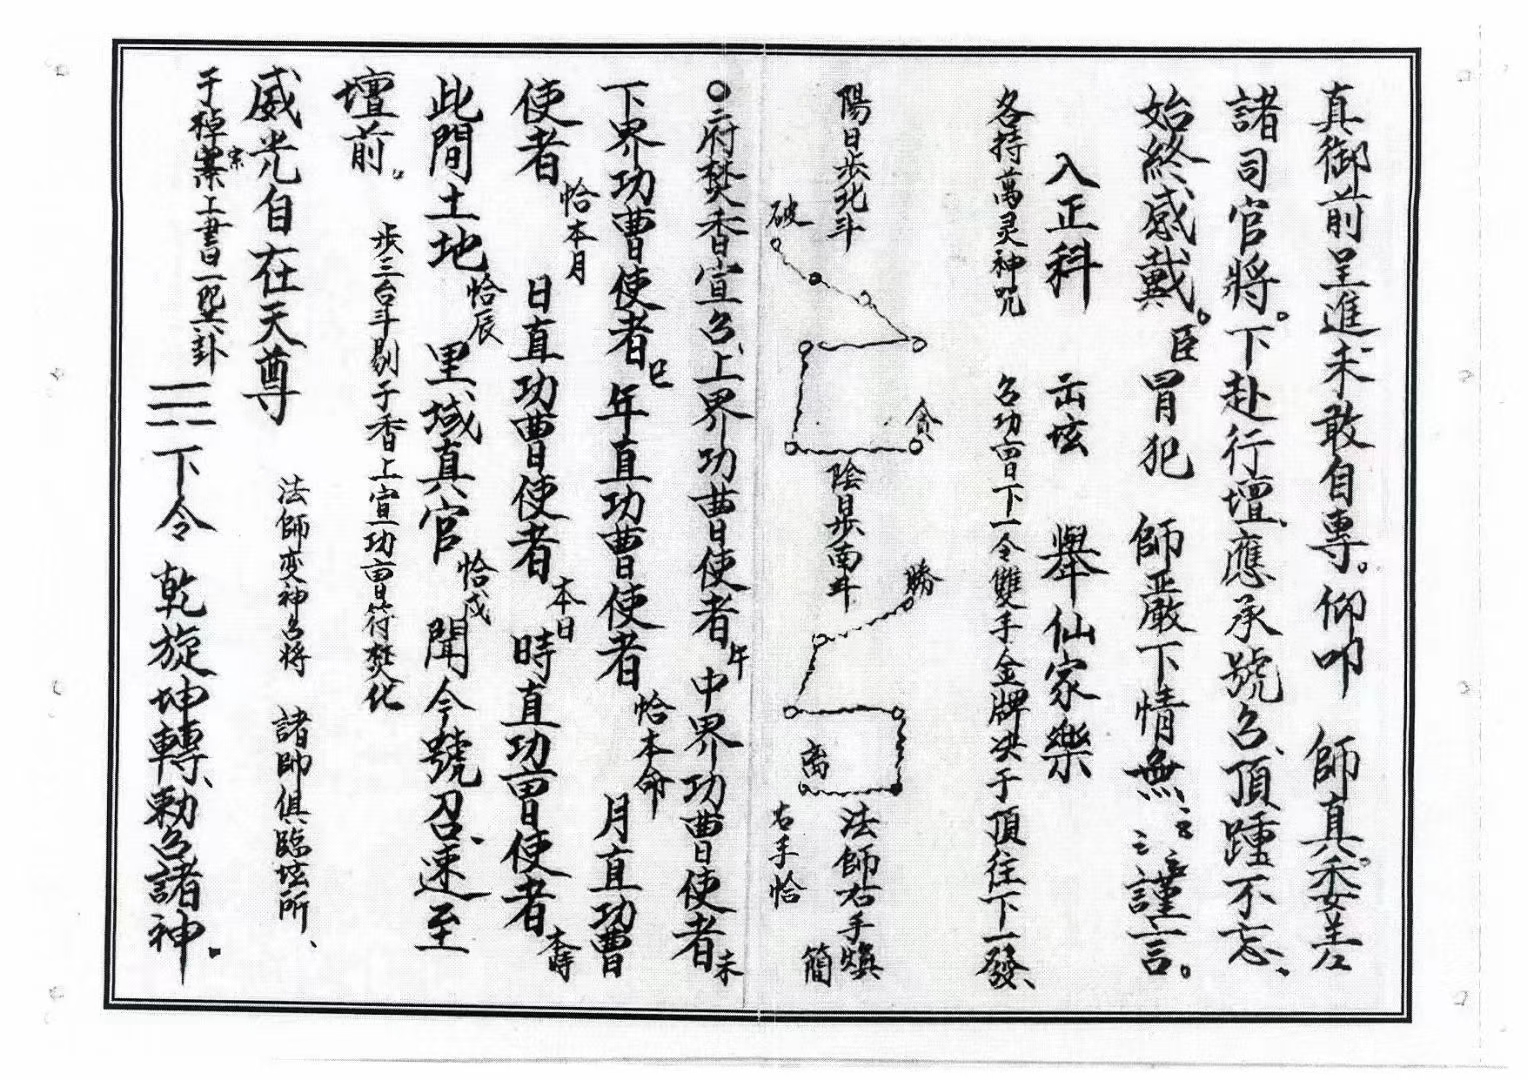 真御前呈進未敢自專。仰叩　師真。委差
諸司官將。下赴行壇、應承號召、頂踵不忘、
始終感戴。臣冒犯　師嚴下情無任謹言。
入正科　　　舉仙家樂
各持萬灵神咒　召功曹下一令雙手金牌決于頂往下一發、
陽日步北斗
破
貪
陰日步南斗
勝
禹
法師右手煥
簡
右手恰
○三府焚香宣召、上界功曹使者午　中界功曹使者未
下界功曹使者巳　年直功曹使者恰本命　月直功曹
使者恰本月　日直功曹使者本日　時直功曹使者本時
此間土地恰辰　里域真官恰戌　聞今號召、速至
壇前。　步三台斗剔于香上宣功曹符焚化
威光自在天尊　法師变神召将　諸帥俱臨坛所、
于棹案上書一卦☴下令　乾旋坤轉、勅召諸神。